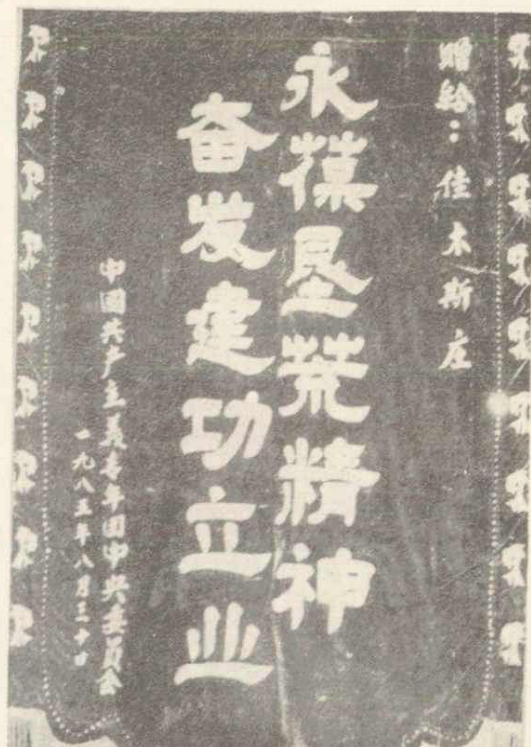 赠给：佳木斯庄
永葆垦荒精神
奋发建功立业
中國共产主義青年团中央委員会
一九八五年八月三十日